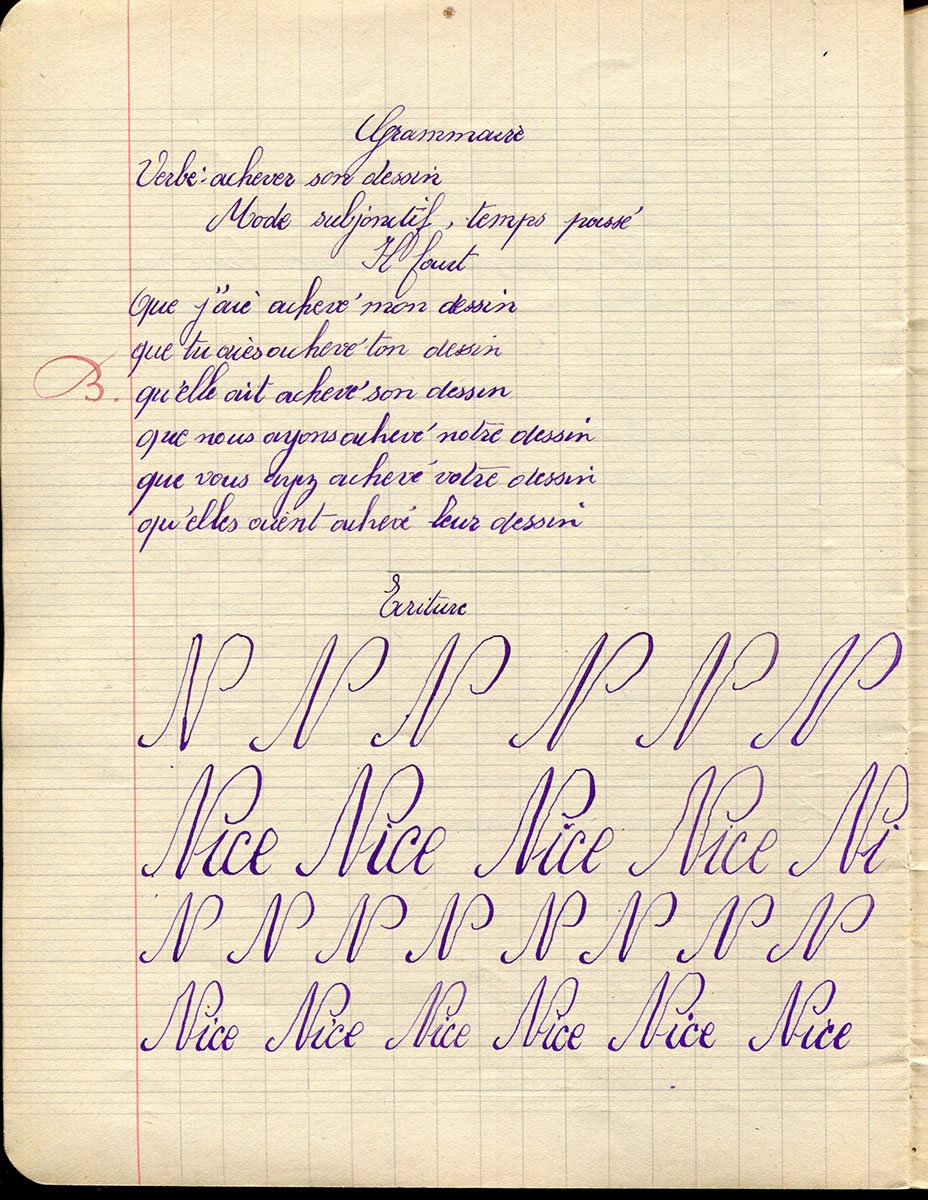 Grammaire
Verbe: achever son dessin
Mode subjonctif, temps passé
Il faut
Que j'aie achevé mon dessin
que tu aies achevé ton dessin
B.
qu'elle ait achevé son dessin
que nous ayons achevé notre dessin
que vous ayez achevé votre dessin
qu'elles aient achevé leur dessin
Ecriture
N N N N N N
Nice Nice Nice Nice Ni
N N N N N N N N
Nice Nice Nice Nice Nice Nice